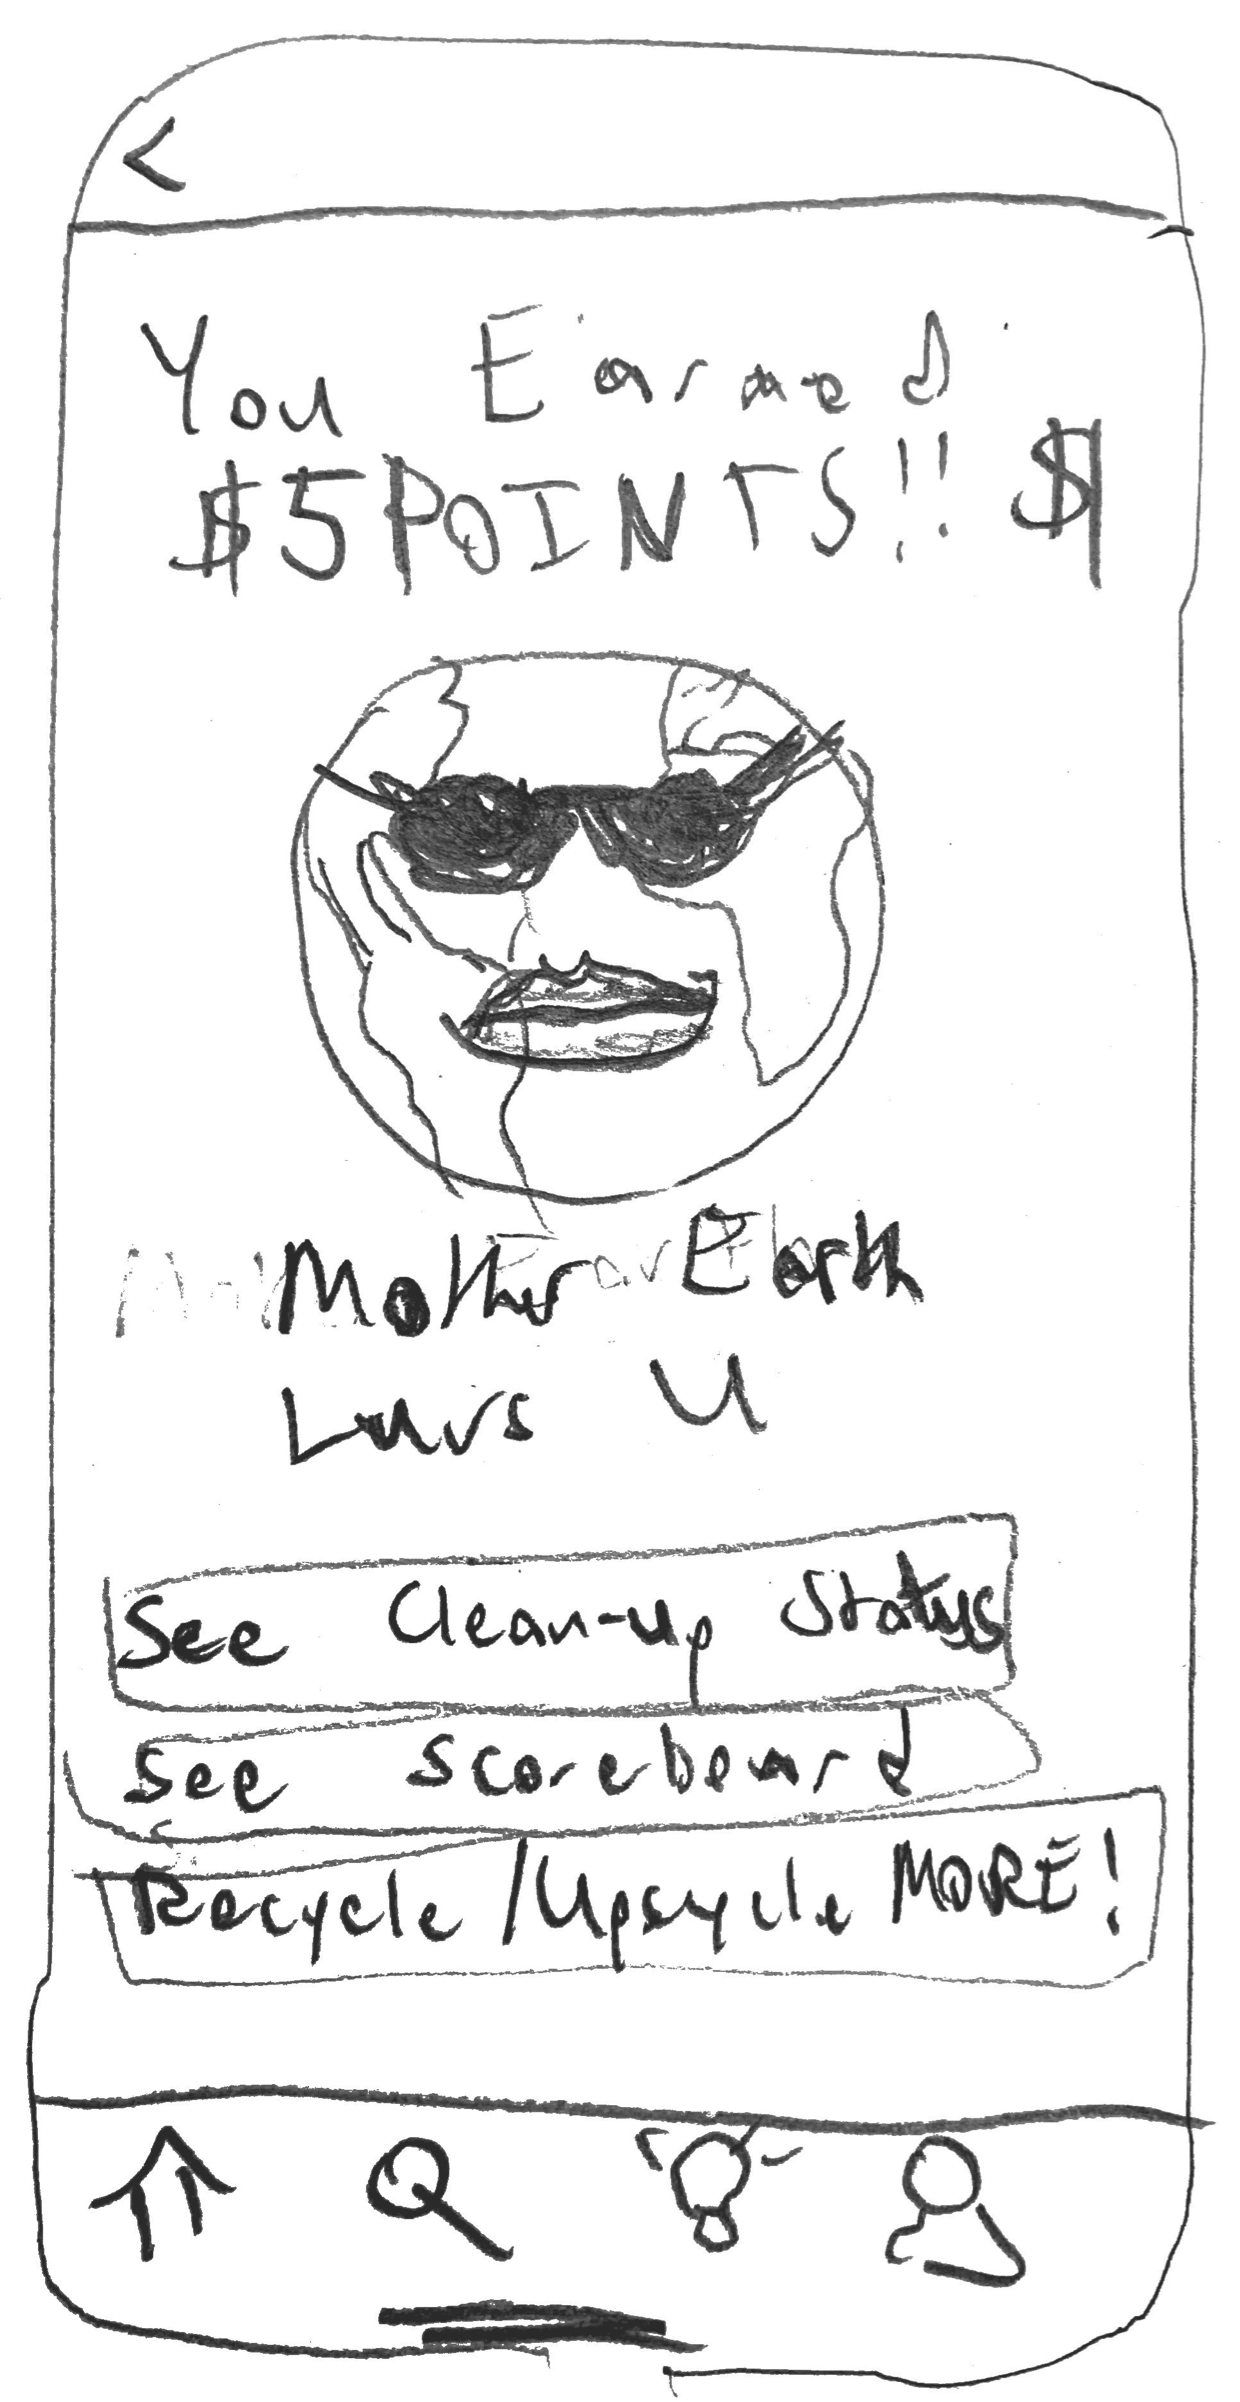 <
You Earned
$5 POINTS!! $
Mother Earth
Luvs U
See Clean-up Status
See Scoreboard
Recycle/Upcycle MORE!